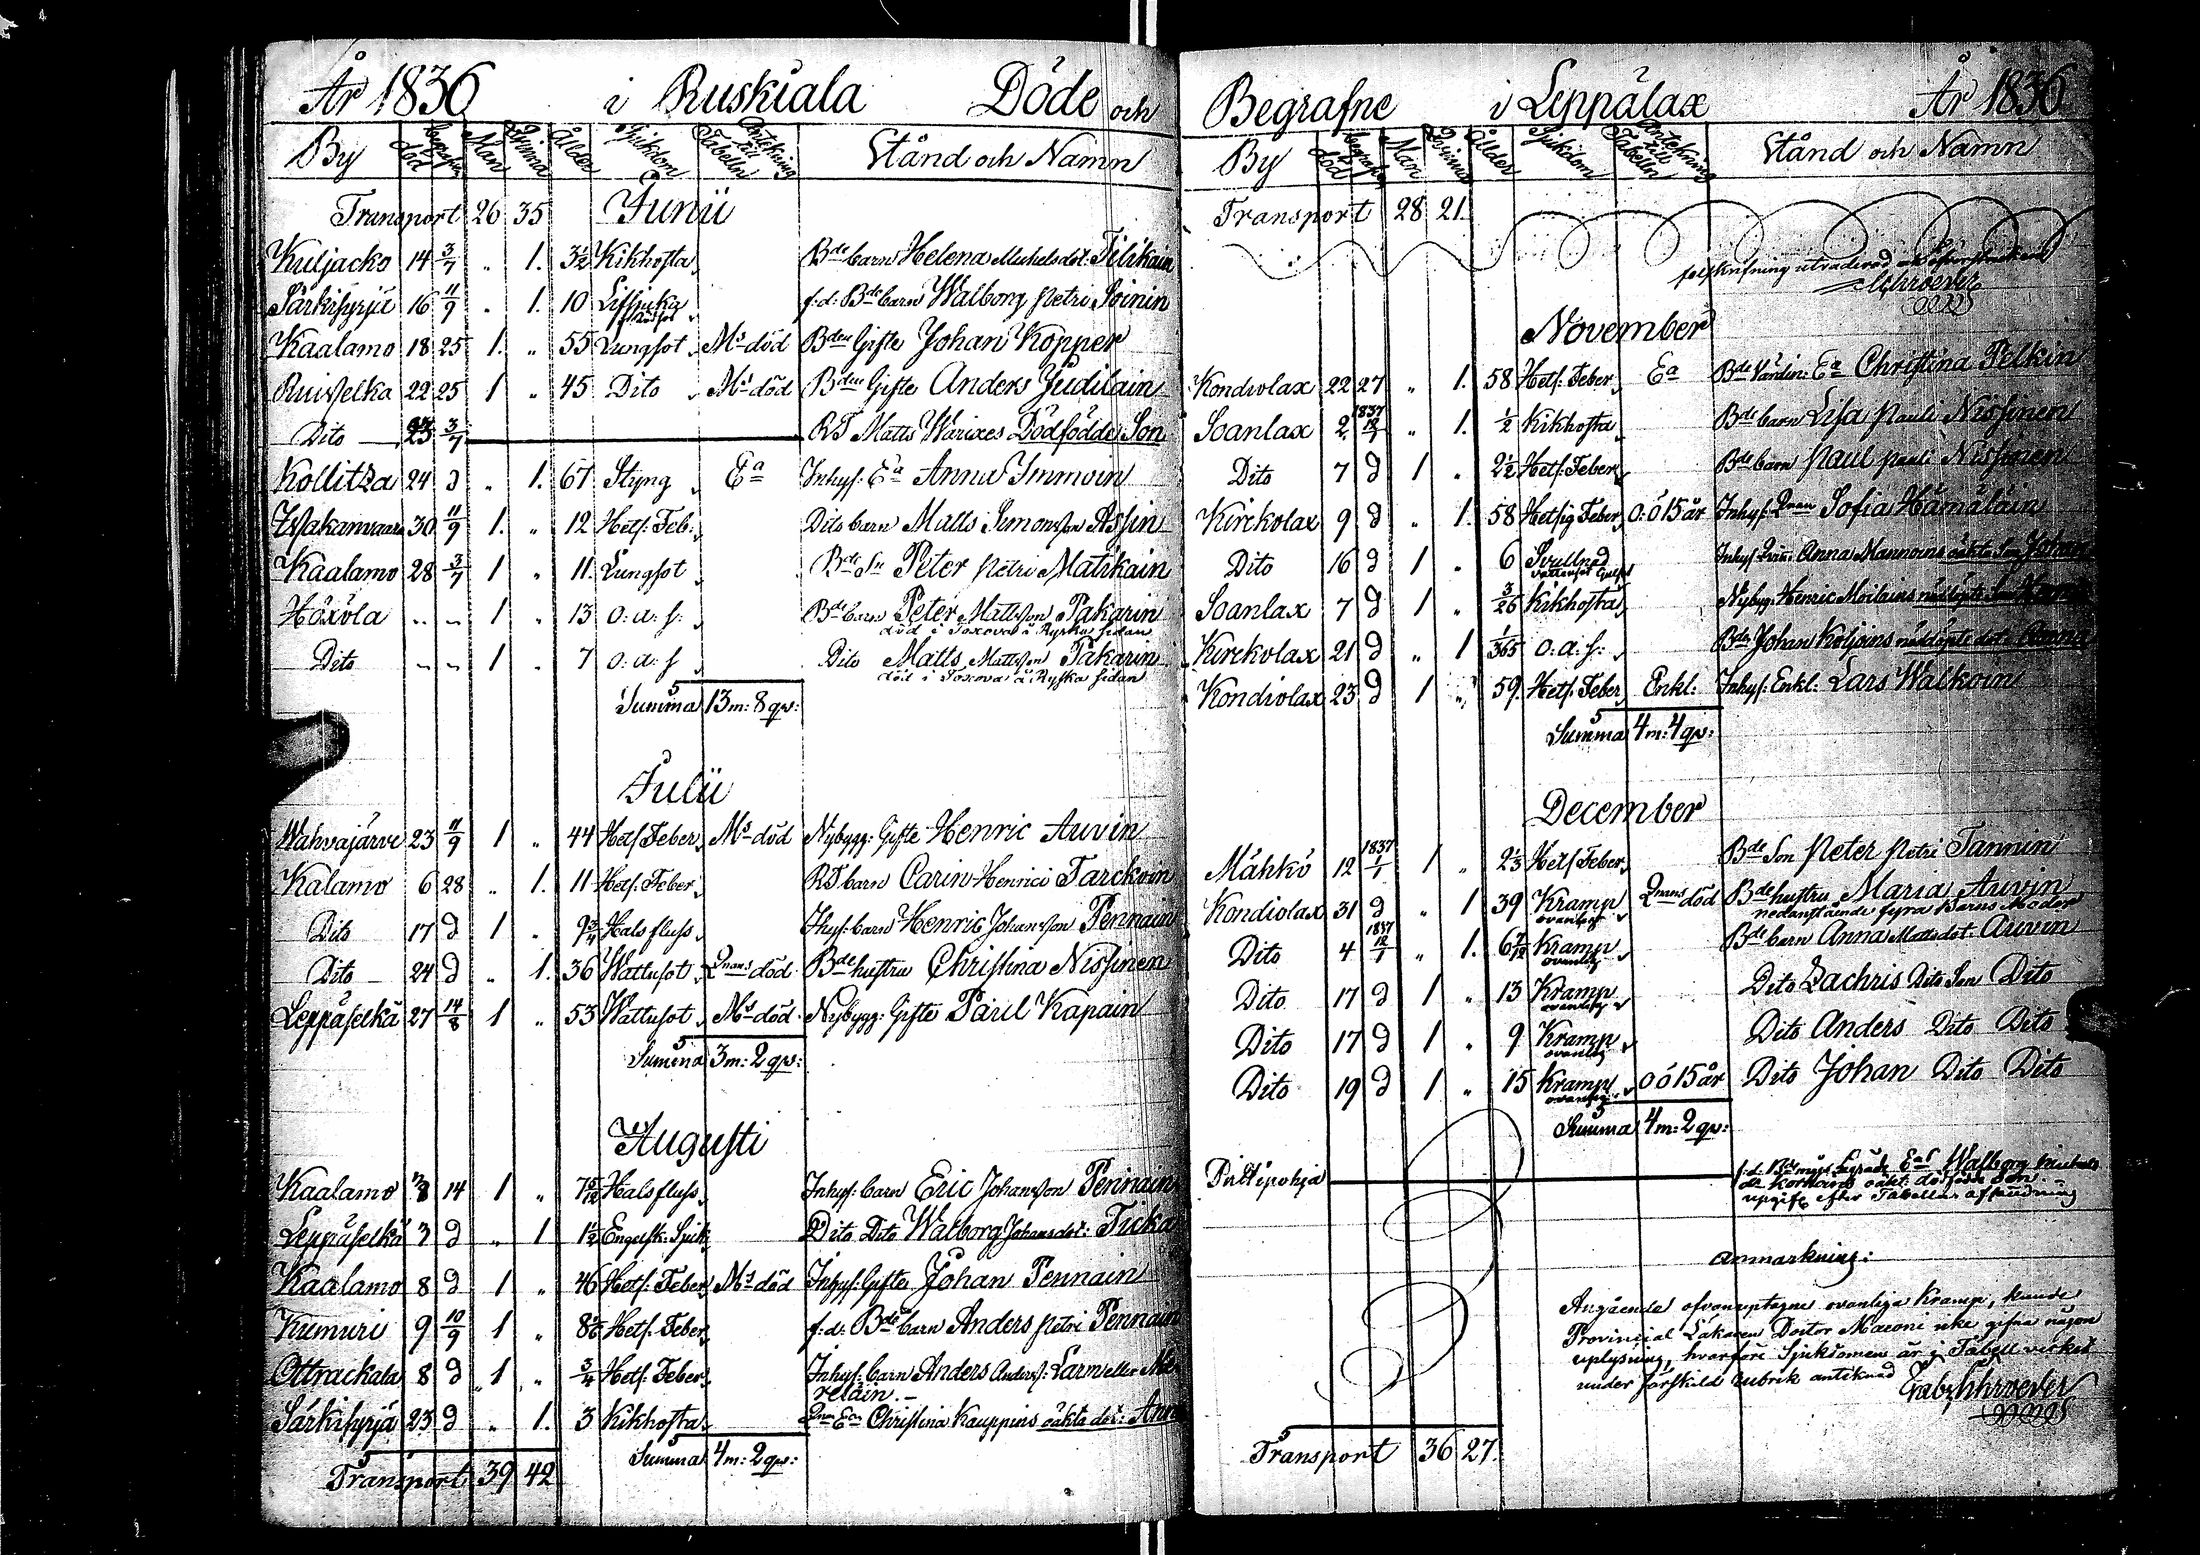 År 1836 i Ruskiala Döde och
By död begrafn Man Qvinna Ålder Sjukdom Anteckning till Tabelln Stånd och Namn
Transport 26 35 Junii
Kuljacko 14 3/7 „ 1. 3½ Kikhosta Bde barn Helena Michelsdot: Tilikain
Särkisyrjä 16 11/9 „ 1. 10 f:d: Bde barn Walborg Petri Soinin
Kaalamo 18 25 1. „ 55 Lungsot Ms död Bden Gifte Johan Kopper
Ruiselka 22 25 1 „ 45 Dito Ms död Bden Gifte Anders Judilain
Dito 23 3/7 RT Matts Warixes Dödfödde Son
Kollitza 24 d „ 1. 67 Styng Ea Inhys: Ea Anna Immoin
30 11/9 1. „ 12 Hets: Feb: Dito barn Matts Simonsson Assin
Kaalamo 28 3/7 1 „ 11. Lungsot Bde Sn Peter Petri Matikain
Höxola „ „ 1 „ 13 o: a: s: Bde barn Peter Mattsson Pakarin
död i Ryska sidan
Dito „ „ 1 „ 7 o: a: s Dito Matts Mattsson Pakarin
död i å Ryska sidan
Summa 13 m: 8 qv:
Julii
Wahvajärve 23 11/9 1 „ 44 Hets Feber Ms död Nybygg: Gifte Henric Auvin
Kalamo 6 28 „ 1. 11 Hets: Feber RT barn Carin Henrici Tarckoin
Dito 17 d 1 „ 9¾ Halsfluss Inhys: barn Henric Johansson Pennain
Dito 24 d „ 1. 36 Wattusot Qnans död Bde hustru Christina Nissinen
Leppäselkä 27 14/8 1 „ 53 Wattusot Ms död Nybygg: Gifte Påul Kapain
Summa 3 m: 2 qv:
Augusti
Kaalamo 14 1 „ Halsfluss Inhys: barn Eric Johansson Pennain
Leppäselkä 3 d „ 1. 1½ Engelsk: Sjuk Dito Dito Walborg Johansdot: Ticka
Kaalamo 8 d 1 „ 46 Hets: Feber Ms död Inhys: Gifte Johan Pennain
Kumuri 9 10/9 1 „ Hets: Feber f: d: Bde barn Anders Petri Pennain
Ottrackala 8 d 1 „ ¾ Hets: Feber Inhys: barn Anders Anders: Larm eller
reläin. –
Särkisyrjä 23 d „ 1. 3 Kikhosta Qnan Eas Christina Kauppins oäkta dot: Anna
Summa 4 m: 2 qv:
Transport 39 42
Begrafne i Leppälax År 1836
By död begrafn Man Qvinna Ålder Sjukdom Anteckning till Tabelln Stånd och Namn
Transport 28 21.
November
Kondiolax 22 27 „ 1. 58 Hets: Feber Ea Bde Värdin: Ea Christina Pelkin
Soanlax 2 1837 „ 1. ½ Kikhosta Bde barn Lisa Pauli Nissinen
Dito 7 d 1 „ 2½ Hets: Feber Bde barn Paul Pauli Nissinen
Kirckolax 9 d „ 1. 58 Hetsig Feber O: ö 15 år Inhys: Qnan Sofia Hämäläin
Dito 16 d 1 „ 6 Svullnad Inhys: Anna Mannoins oäkta Son Johan
Soanlax 7 d 1 „ 3/26 Kikhosta Nybyg: Henric Moilains nöddöpte Son
Kirckolax 21 d „ 1 1/365 o: a: s: Bde Johan Koljoins nöddöpte dot: Anna
Kondiolax 23 d 1 „ 59. Hets: Feber Enkl: Inhys: Enkl: Lars Walkoin
Summa 4 m: 4 qv:
December
Måhkö 12 1837 1/1 1 „ 2⅓ Hets Feber Bde Son Peter Petri Tannin
Kondiolax 31 d „ 1 39 Kramp ovanlig Qnans död Bde hustru Maria Auvin
nedanstående fyra Barns Moder
Dito 4 1837 „ 1. 6 7/12 Kramp ovanlig Bde barn Anna Mattsdot: Auvin
Dito 17 d 1 „ 13 Kramp ovanlig Dito Zachris Dito Son Dito
Dito 17 d 1 „ 9 Kramp ovanlig Dito Anders Dito Dito
Dito 19 d 1 „ 15 Kramp ovanlig O ö 15 år Dito Johan Dito Dito
Summa 4 m: 2 qv:
upgift efter Tabellns afsändning
Anmärkning:
Angående ofvanuptagne ovanliga Kramp, kunde
Provincial Läkaren Doctor Maconi icke gifva någon
uplysning, hvarföre Sjukdomen är i Tabell verket
under särskild rubrik antecknad
Transport 36 27.